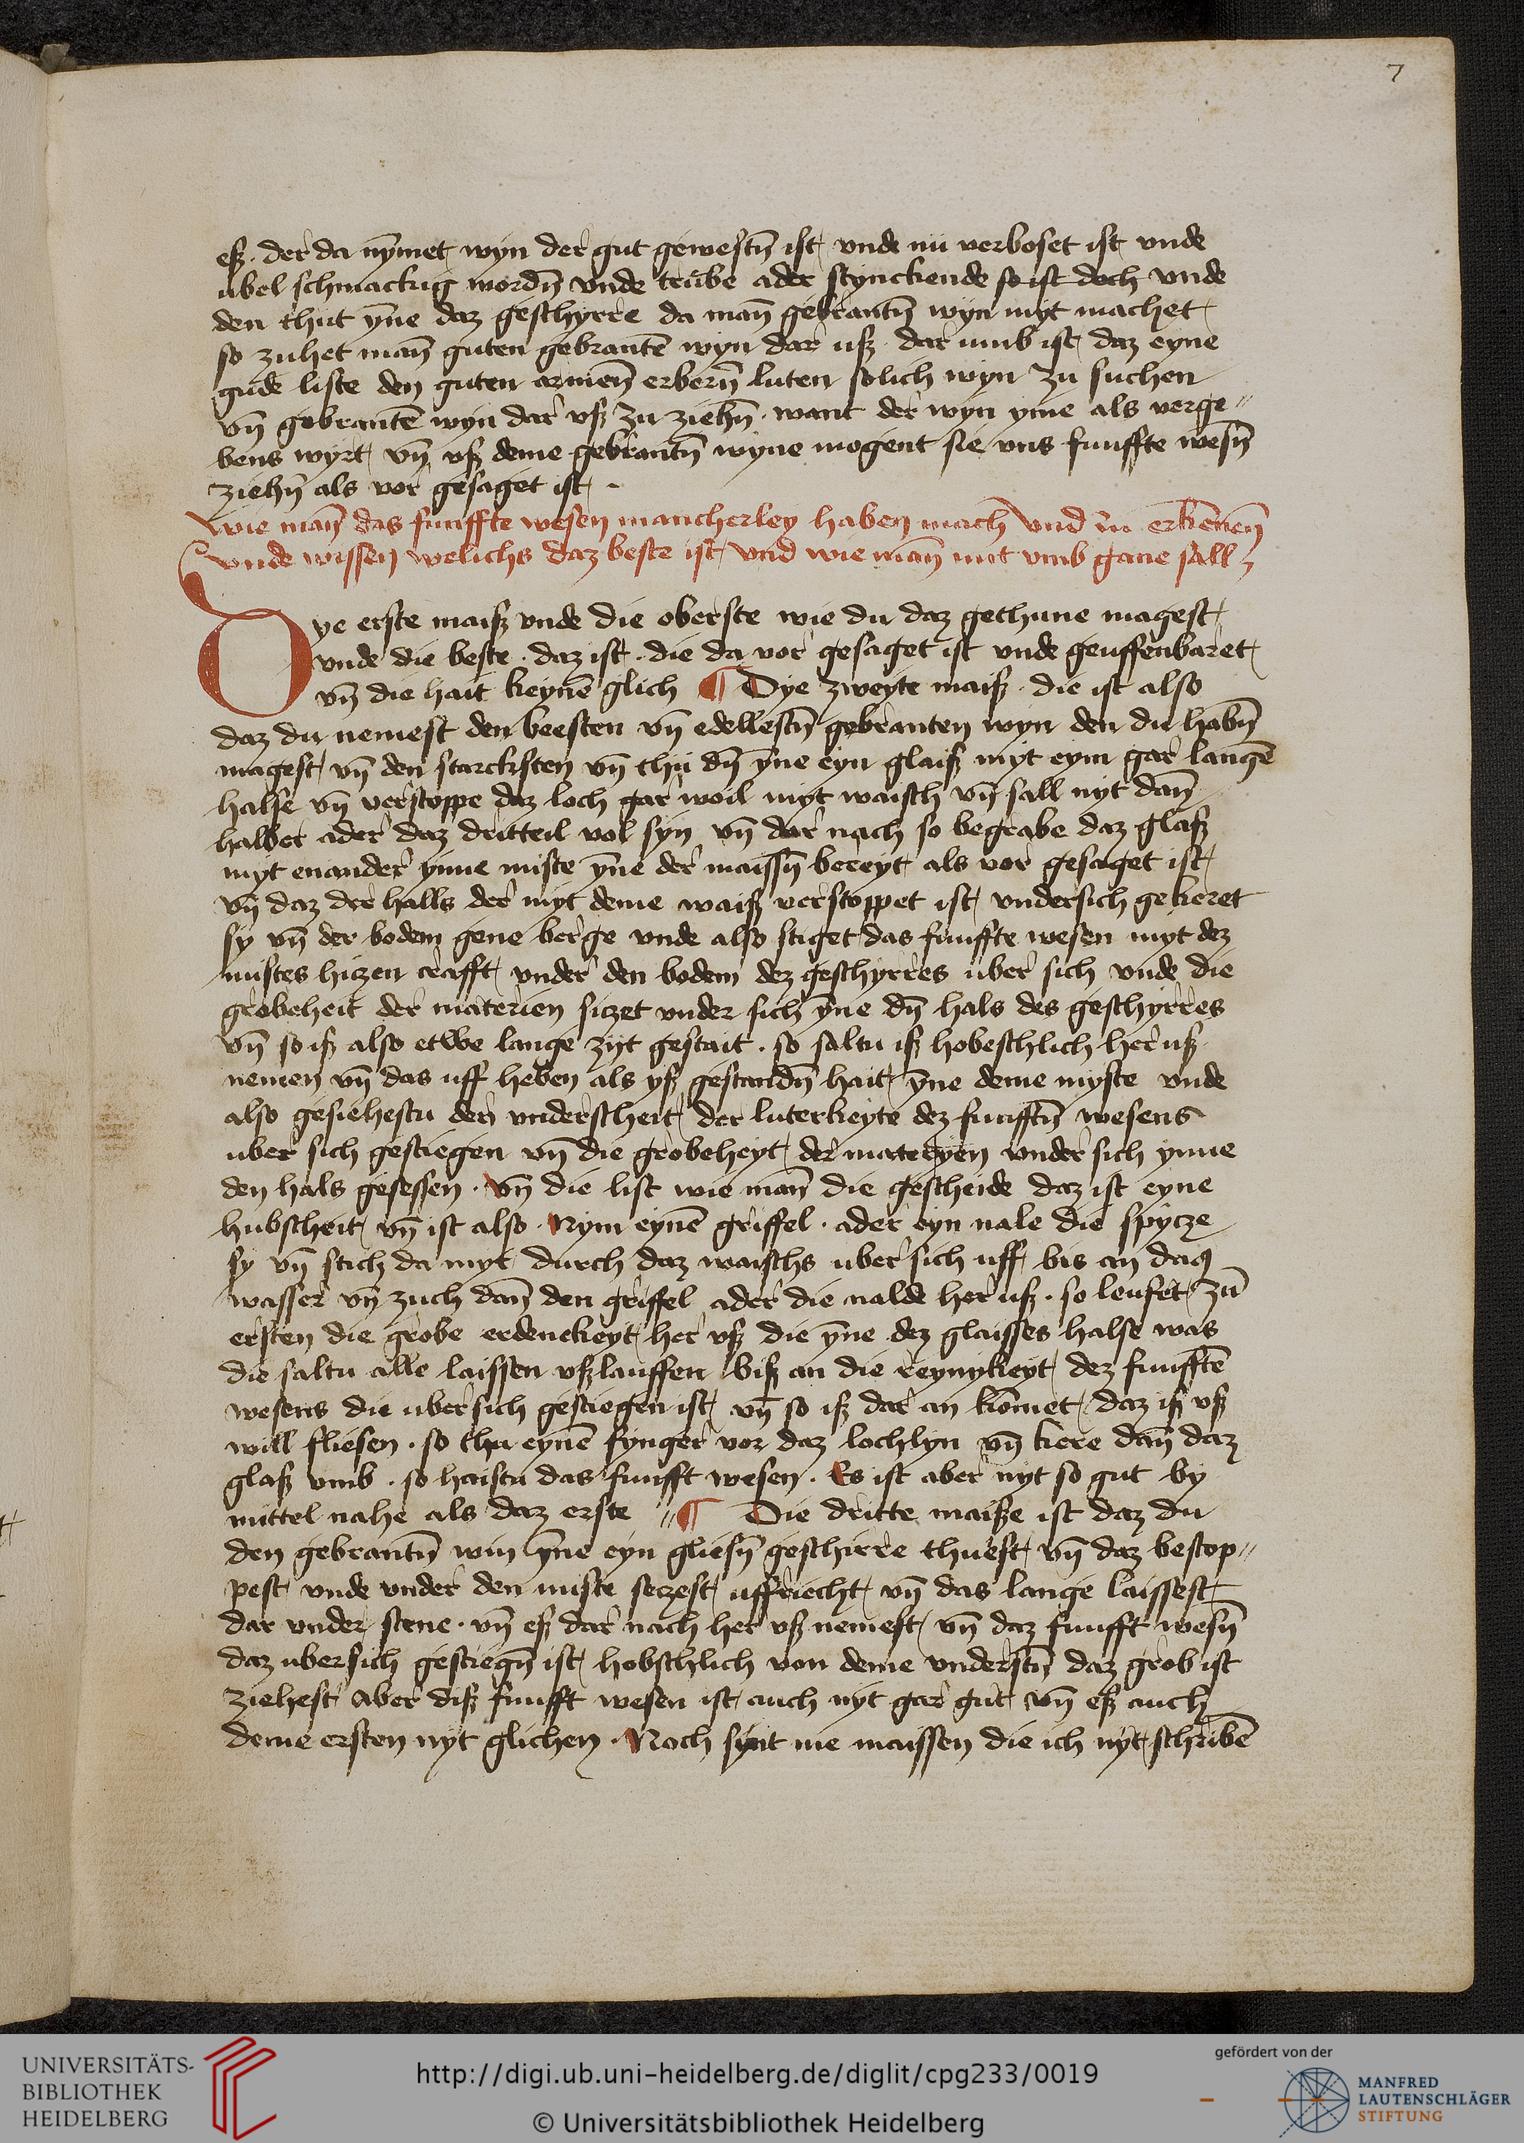 7
eß · der da ny̅met wyn der gut gewestn̅ ist vnde nu verboset ist vnde
ubel schmackug wordn̅ vnde trube ader stynckende so ist doch vnde
den thut yn̅e daz geschyrre da man̅ gebrantn̅ wyn myt machet
so zuhet man̅ guten gebrante̅ wyn dar uß · dar umb ist daz eyne
gude liste den guten armen̅ erbern̅ luten solich wyn zu suchen
vn̅ gebrante̅ wyn dar vß zu ziehn̅ · want der wyn yme als verge〃
bens wyrt vn̅ vß deme gebrantn̅ wyne mogent sie vns funffte wesn̅
ziehn̅ als vor gesaget ist ·
Wie man̅ das funffte wesen mancherley haben mach vnd in erkenen̅
vnde wissen welichs daz beste ist vnd wie man̅ mit vmb gane sall
Dye erste maiß vnde die oberste wie du daz gethune magest
vnde die beste · daz ist · die da vor gesaget ist vnde geuffenbaret
vn̅ die hait keyne̅ glich ¶ Dye zweyte maiß · die ist also
daz du nemest den beesten vn̅ edellestn̅ gebranten wyn den du habn̅
magest vn̅ den starcksten vn̅ thu dn̅ yn̅e eyn glaiß myt eym gar lange̅
halse vn̅ verstoppe daz loch gar woil myt waisch vn̅ sall nyt dan̅
halber ader daz dritteil vol syn vn̅ dar nach so begrabe daz glaß
myt enander ynne miste yn̅e der maissn̅ bereyt als vor gesaget ist
vn̅ daz der halls der myt deme waiß verstoppet ist vndersich gekeret
sy vn̅ der bodem gene berge vnde also stiget das funffte wesen myt dez
mistes hitzen crafft vnder den bodem dez geschyrres uber sich vnde die
grobeheit der materien sitzet vnder sich yn̅e dn̅ hals des geschyrres
vn̅ so iß also etwe lange zyt gestait · so saltu iß hobeschlich her uß
nemen vn̅ das uff heben als yß gestandn̅ hait yn̅e deme myste vnde
also gesiehestu den vnderscheit der luterkeyte dez funfftn̅ wesens
uber sich gestiegen vn̅ die grobeheyt der materyen vnder sich ynne
den hals gesessen · Vn̅ die list wie man̅ die gescheide daz ist eyne
hubscheit vn̅ ist also · Nym eyne̅ griffel · ader eyn nale die spytze
sy vn̅ stich da myt durch daz waischs uber sich uff bis an daz
wasser vn̅ zuch dan̅ den griffel ader die nalde her uß · so leufet zu̅
ersten die grobe erdenckeyt her vß die yn̅e dez glaisses halse was
die saltu alle laissen vßlauffen biß an die reynykeyt dez funffte̅
wesens die ubersich gestiegen ist vn̅ so iß dar an ko̅met daz iß vß
will fliesen · so thu eyne̅ fynger vor daz lochlyn vn̅ kere dan̅ daz
glaß vmb · so haistu das funfft wesen · Es ist aber nyt so gut by
mittel nahe als daz erste 〃 ¶ Die dritte maiße ist daz du
den gebrantn̅ win yn̅e eyn gliesn̅ geschirre thuest vn̅ daz bestop〃
pest vnde vnder den miste setzest uffriecht vn̅ das lange laissest
dar vnder stene · vn̅ eß dar nach her vß nemest vn̅ daz funfft wesn̅
daz ubersich gestiegn̅ ist hobschlich von deme vnderstn̅ daz grob ist
ziehest aber diß funfft wesen ist auch nyt gar gut vn̅ eß auch
deme ersten nyt glichen · Noch synt me maissen die ich nyt schribe̅
UNIVERSITÄTS-
BIBLIOTHEK
HEIDELBERG
http://digi.ub.uni-heidelberg.de/diglit/cpg233/0019
© Universitätsbibliothek Heidelberg
gefördert von der
MANFRED
LAUTENSCHLÄGER
STIFTUNG